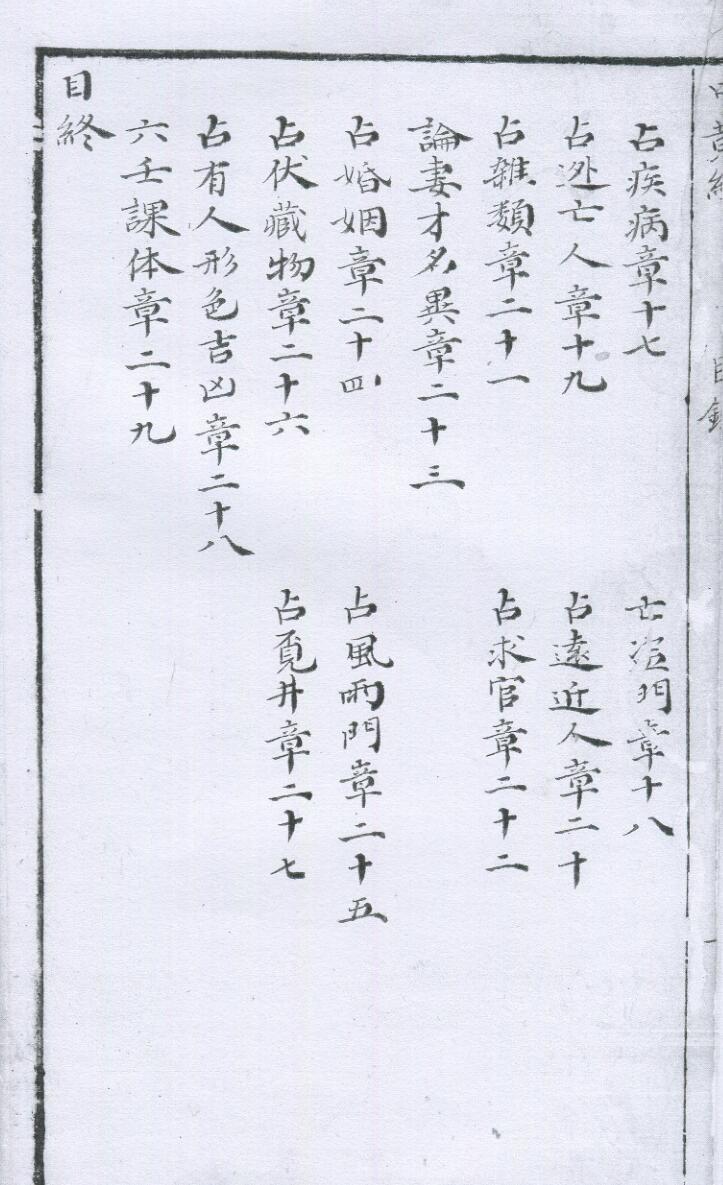 占疾病章十七
亡盗門章十八
占逃亡人章十九
占遠近人章二十
占雜類章二十一
占求官章二十二
論妻才名異章二十三
占婚姻章二十四
占風雨門章二十五
占伏藏物章二十六
占覓井章二十七
占有人形色吉凶章二十八
六壬課体章二十九
目終
目錄